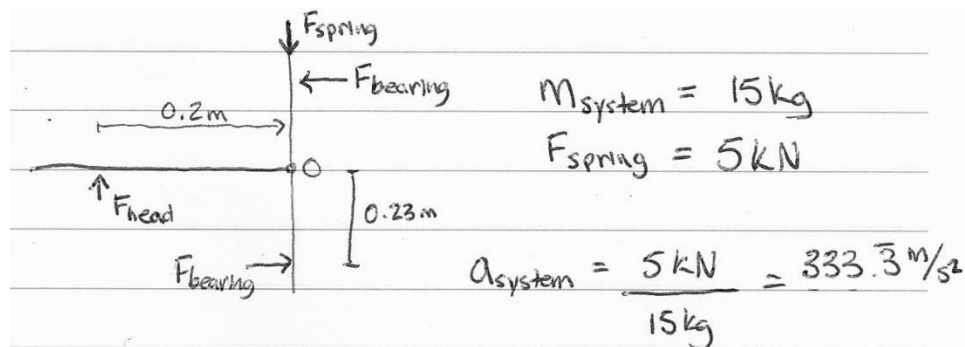 Fspring
Fbearing
0.2m
O
Fhead
0.23m
Fbearing
msystem = 15kg
Fspring = 5kN
asystem = 5kN / 15kg = 333.3̅ m/s²